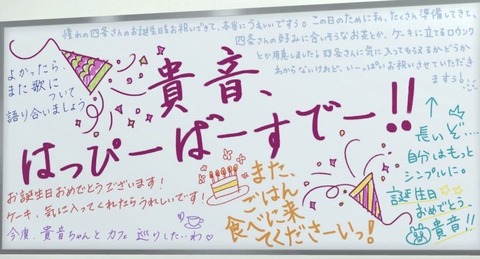 憧れの四条さんのお誕生日をお祝いできて、本当にうれしいですぅ。この日のために私、たくさん準備してきて、
四条さんの好みに合いそうなお茶とか、ケーキに立てるロウソク
とか用意しました！四条さんに気に入ってもらえるかどうか
わからないけれど、いーっぱいお祝いさせていただき
ますぅ。
よかったら、
また歌に
ついて
語り合いましょう
貴音、
はっぴーばーすでー!!
お誕生日おめでとうございます！
ケーキ、気に入ってくれたらうれしいです！
今度、貴音ちゃんとカフェ巡りしたいわ
また、
ごはん
食べに来
てくださーいっ！
長いぞ…
自分はもっと
シンプルに。
誕生日
おめでとう、
貴音!!